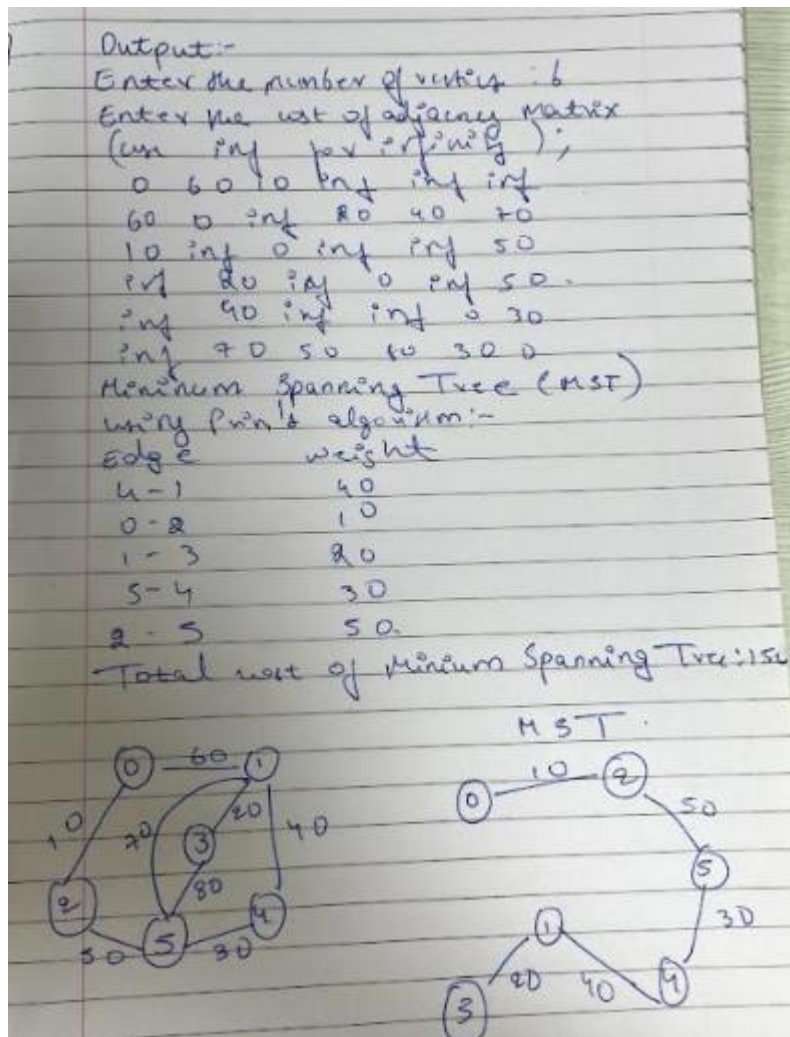 Output:-
Enter the number of vertices : 6
Enter the cost of adjacency matrix
(use inf for infinity);
0 60 10 inf inf inf
60 0 inf 20 40 70
10 inf 0 inf inf 50
inf 20 inf 0 inf 50.
inf 40 inf inf 0 30
inf 70 50 80 30 0
Minimum Spanning Tree (MST)
using Prim's algorithm:-
Edge weight
4-1 40
0-2 10
1-3 20
5-4 30
2-5 50.
Total cost of Minium Spanning Tree:
MST.
0 60 1
10 70 20 40
3
80
2 50 5 30 4
0 10 2
50
5
30
1
3 20 40 4